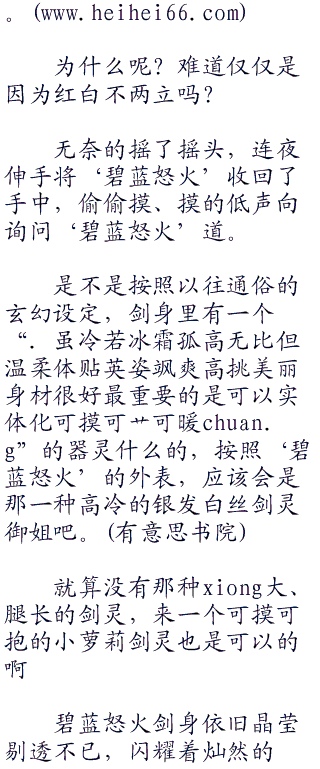 。(www.heihei66.com)
为什么呢？难道仅仅是
因为红白不两立吗？
无奈的摇了摇头，连夜
伸手将‘碧蓝怒火’收回了
手中，偷偷摸、摸的低声向
询问‘碧蓝怒火’道。
是不是按照以往通俗的
玄幻设定，剑身里有一个
“．虽冷若冰霜孤高无比但
温柔体贴英姿飒爽高挑美丽
身材很好最重要的是可以实
体化可摸可艹可暖chuan.
g”的器灵什么的，按照‘碧
蓝怒火’的外表，应该会是
那一种高冷的银发白丝剑灵
御姐吧。(有意思书院)
就算没有那种xiong大、
腿长的剑灵，来一个可摸可
抱的小萝莉剑灵也是可以的
啊
碧蓝怒火剑身依旧晶莹
剔透不已，闪耀着灿然的